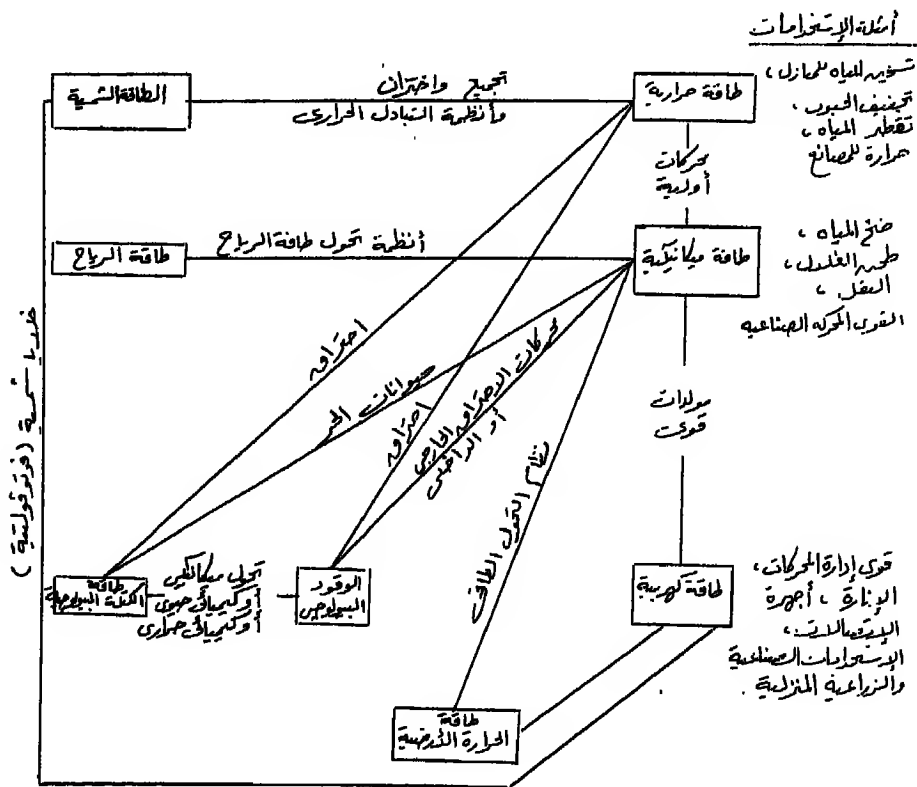 أمثلة الإستخدامات
الطاقة الشمسية
تجميع واختزان
وأنظمة التبادل الحرارى
طاقة حرارية
تسخين المياه للمنازل ،
تجفيف الحبوب ،
تقطير المياه ،
حرارة للمصانع
محركات
أولية
طاقة الرياح
أنظمة تحول طاقة الرياح
طاقة ميكانيكية
ضخ المياه ،
طحن الغلال ،
النقل ،
القوى المحركة الصناعية
خلايا شمسية (فوتوفولتية)
احتراق
حيوانات الجر
احتراق
محركات الاحتراق الخارجى
أو الداخلى
نظام التحول الطاقى
مولدات
قوى
طاقة
الكتلة البيولوجية
تحول ميكانيكى
أو كيميائى حيوى
أو كيميائى حرارى
الوقود
البيولوجى
طاقة كهربية
قوى إدارة المحركات ،
الإنارة ، أجهزة
الإتصالات ،
الإستخدامات الصناعية
والزراعية المنزلية .
طاقة
الحرارة الأرضية